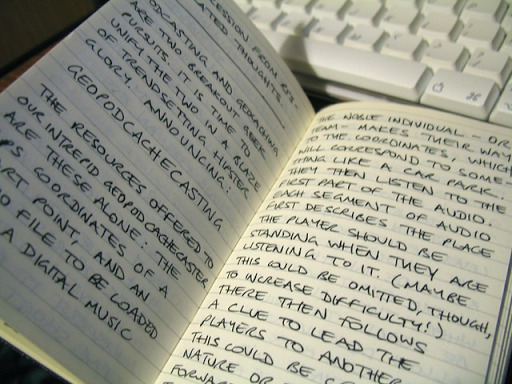 CESSION FROM
ATED THOUGHTS.
ODCASTING AND GEOCACHING
ARE TWO BREAKOUT GEEK
PURSUITS. IT IS TIME TO
UNIFY THE TWO IN A BLAZE
OF TRENDSETTING HIPSTER
GLORY. ANNOUNCING:
GEOPODCACHECASTING
THE RESOURCES OFFERED TO
OUR INTREPID GEOPODCACHECASTER
ARE THESE ALONE: THE
COORDINATES OF A
RT POINT, AND AN
O FILE TO BE LOADED
A DIGITAL MUSIC
THE NOBLE INDIVIDUAL - OR
TEAM - MAKES THEIR WAY
TO THE COORDINATES, WHICH
WILL CORRESPOND TO SOME-
THING LIKE A CAR PARK.
THEY THEN LISTEN TO THE
FIRST PART OF THE AUDIO.
EACH SEGMENT OF AUDIO
FIRST DESCRIBES THE PLACE
THE PLAYER SHOULD BE
STANDING WHEN THEY ARE
LISTENING TO IT. (MAYBE
THIS COULD BE OMITTED, THOUGH,
TO INCREASE DIFFICULTY!)
THERE THEN FOLLOWS
A CLUE TO LEAD THE
PLAYERS TO ANOTHER
THIS COULD BE
NATURE OR
FORWARD